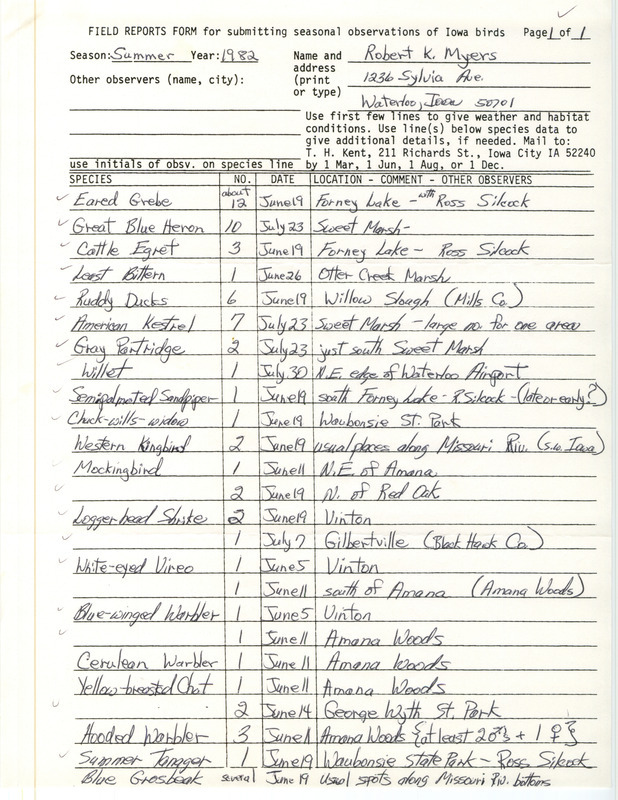 FIELD REPORTS FORM for submitting seasonal observations of Iowa birds Page 1 of 1
Season: Summer Year: 1982 Name and Robert K. Myers
address
Other observers (name, city): (print 1236 Sylvia Ave.
or type)
Waterloo, Iowa 50701
Use first few lines to give weather and habitat
conditions. Use line(s) below species data to
give additional details, if needed. Mail to:
T. H. Kent, 211 Richards St., Iowa City IA 52240
use initials of obsv. on species line by 1 Mar, 1 Jun, 1 Aug, or 1 Dec.
SPECIES NO. DATE LOCATION - COMMENT - OTHER OBSERVERS
Eared Grebe about 12 June 19 Forney Lake - with Ross Silcock
Great Blue Heron 10 July 23 Sweet Marsh-
Cattle Egret 3 June 19 Forney Lake - Ross Silcock
Least Bittern 1 June 26 Otter Creek Marsh
Ruddy Ducks 6 June 19 Willow Slough (Mills Co.)
American Kestrel 7 July 23 Sweet Marsh - large no. for one area
Gray Partridge 2 July 23 just south Sweet Marsh
Willet 1 July 30 N.E. edge of Waterloo Airport
Semipalmated Sandpiper 1 June 19 south Forney Lake - R Silcock - (late or early?)
Chuck-wills-widow 1 June 19 Waubonsie St. Park
Western Kingbird 2 June 19 usual places along Missouri Riv. (s.w. Iowa)
Mockingbird 1 June 11 N.E. of Amana
2 June 19 N. of Red Oak
Loggerhead Shrike 2 June 19 Vinton
1 July 7 Gilbertville (Black Hawk Co.)
White-eyed Vireo 1 June 5 Vinton
1 June 11 south of Amana (Amana Woods)
Blue-winged Warbler 1 June 5 Vinton
1 June 11 Amana Woods
Cerulean Warbler 1 June 11 Amana Woods
Yellow-breasted Chat 1 June 11 Amana Woods
2 June 14 George Wyth St. Park
Hooded Warbler 3 June 11 Amana Woods {at least 2♂'s + 1 ♀}
Summer Tanager 1 June 19 Waubonsie State Park - Ross Silcock
Blue Grosbeak several June 19 Usual spots along Missouri Riv. bottoms